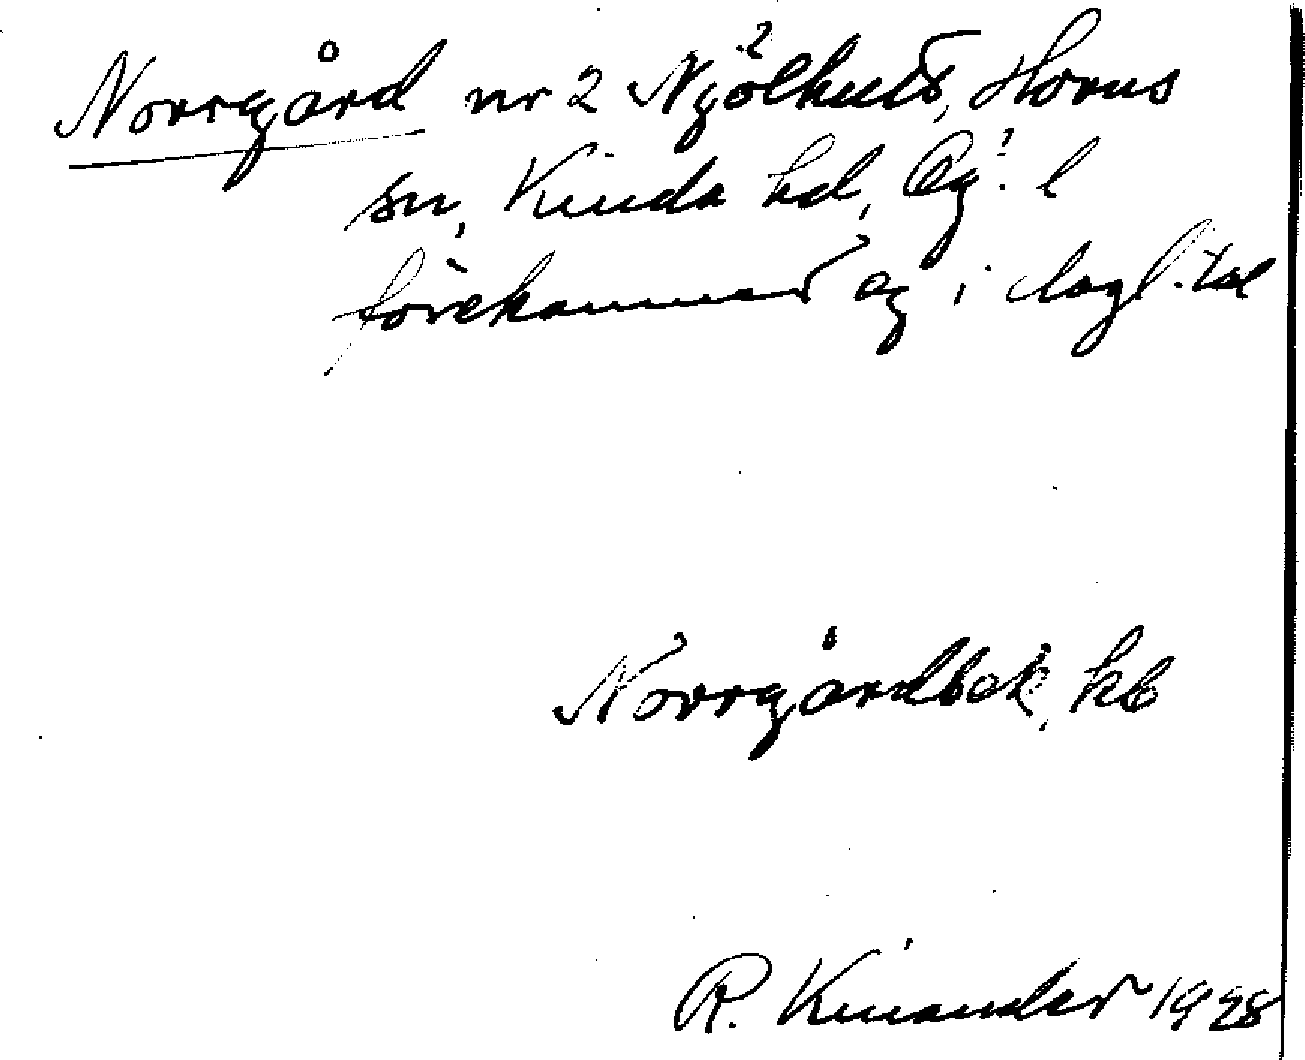 Norrgård nr 2 Ngölhults, Horns
sn, Kinda hd, Ög. l
förekommer ej i dagl. tal
Norrgårdbok, kb
R. Kinander 1928